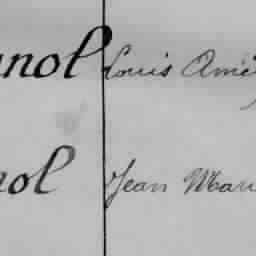 nol Louis Amé
ol Jean Mari